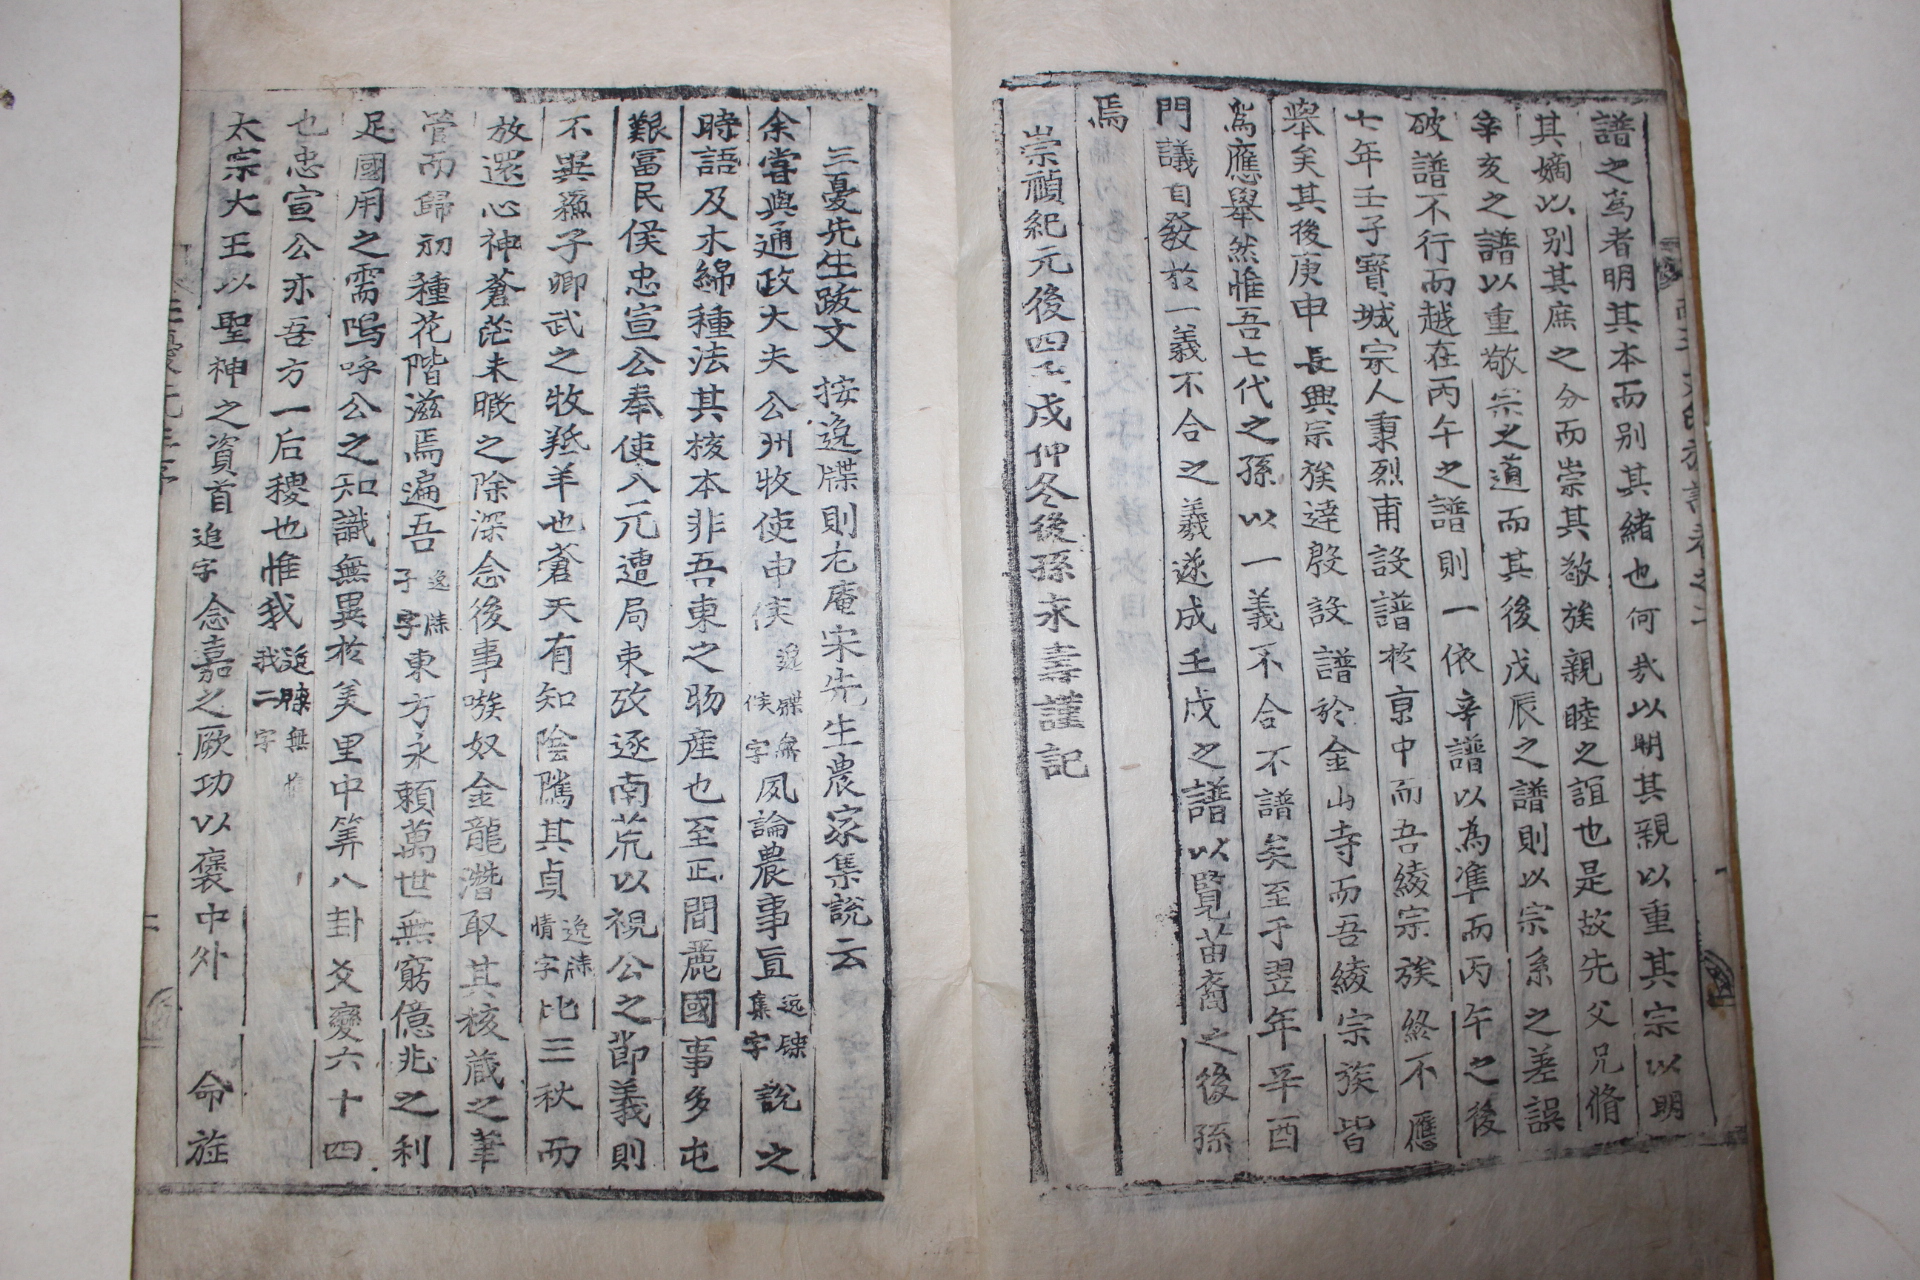 譜之爲者明其本而别其緖也何㢤以明其親以重其宗以明
其嫡以别其庶之分而崇其敬族親睦之誼也是故先父兄脩
辛亥之譜以重敬宗之道而其後戊辰之譜則以宗系之差誤
破譜不行而越在丙午之譜則一依辛譜以為準而丙午之後
七年壬子寶城宗人秉烈甫設譜於京中而吾綾宗族終不應
擧矣其後庚申長興宗族達殷設譜於金山寺而吾綾宗族皆
爲應擧然惟吾七代之孫以一義不合不譜矣至于翌年辛酉
門議自發於一義不合之義遂成壬戌之譜以覽苗裔之後孫
焉
崇禎紀元後四壬戌仲冬後孫永壽謹記
三憂先生跋文 按逸牒則尤庵宋先生農家集說云
余嘗與通政大夫公州牧使申侯 逸牒無侯字 夙論農事豆 逸牒集字 說之
時語及木綿種法其核本非吾東之物産也至正間麗國事多屯
艱富民侯忠宣公奉使入元遭局東攷逐南荒以視公之節義則
不異蘇子卿武之牧羝羊也蒼天有知陰隲其貞 逸牒情字 比三秋而
放還心神蒼茫未暇之除深念後事嗾奴金龍潛取其核蔵之筆
管而歸初種花階滋焉遍吾 逸牒子字 東方永賴萬世無窮億兆之利
足國用之需嗚呼公之知識無異於羑里中筭八卦爻變六十四
也忠宣公亦吾方一后稷也惟我 逸牒無惟我二字
太宗大王以聖神之資首 追字 念嘉之厥功以褒中外 命旌